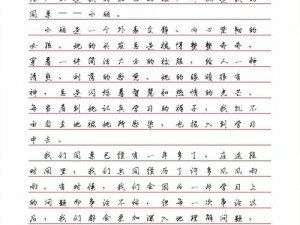 同桌——小丽。
小丽是一个外表文静、内心坚韧的
女孩。她的头发总是梳得整整齐齐，
穿着一件简洁大方的校服，给人一种
清爽、利落的感觉。她的眼睛很有
神，总是闪烁着智慧和热情的光芒。
每当看到她认真学习的样子，我就不
由自主地被她所感染，也投入到学习
中去。
我们同桌已经有一年多了，在这段
时间里，我们共同经历了许多风风雨
雨。有时候，我们会因为一些学习上
的问题而争论不休，但每一次争论过
后，我们都会更加深入地理解问题，